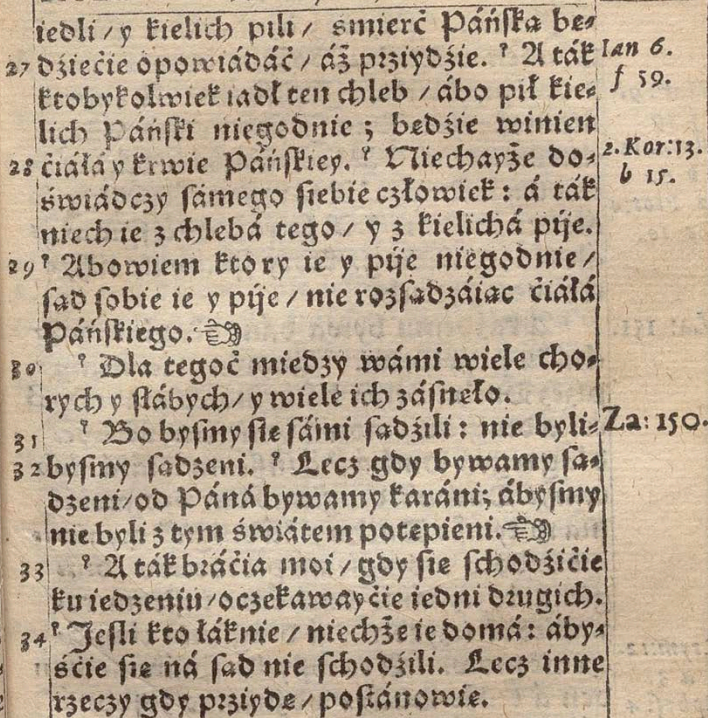 iedli / y kielich pili / śmierć Páńſka be⸗
27 dźiećie opowiádáć / áż przyidźie. ˀ A ták
ktobykolwiek iadł ten chleb / ábo pił kie⸗
lich Páńſki niegodnie ; bedźie winien
28 ćiáłá y krwie Páńſkiey. ˀ Niechayże do⸗
świádczy ſámego ſiebie człowiek : á ták
niech ie z chlebá tego / y z kielichá pije.
29 ˀ Abowiem ktory ie y pije niegodnie /
ſad ſobie ie y pije / nie rozſadzáiac ćiáłá
Páńſkiego. ☜
30 ˀ Dla tegoć miedzy wámi wiele cho⸗
rych y ſłábych / y wiele ich záſneło.
31 ˀ Bo byſmy ſie ſámi ſadźili : nie byli⸗
32 byſmy ſadzeni. ˀ Lecz gdy bywamy ſa⸗
dzeni / od Páná bywamy karáni; ábyſmy
nie byli z tym świátem potepieni. ☜
33 ˀ A ták bráćia moi / gdy ſie ſchodźićie
ku iedzeniu / oczekawayćie iedni drugich.
34 ˀ Jeſli kto łáknie / niechże ie domá : áby⸗
śćie ſie ná ſad nie ſchodźili. Lecz inne
rzeczy gdy przyide / poſtánowie.
Ian 6.
f 59.
2. Kor: 13.
b 15.
Za: 150.